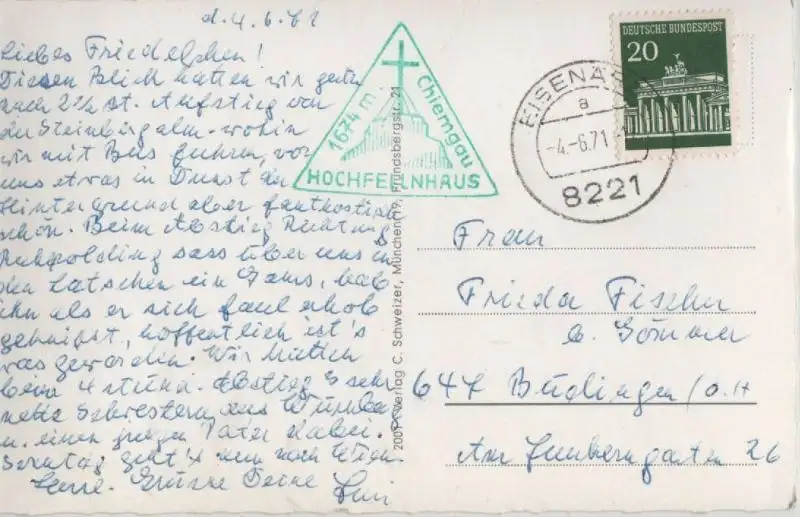 d. 4.6.71
Liebes Friedelchen!
Diesen Blick hatten wir gestern
nach 2½ St. Aufstieg von
der Steinbergalm - wohin
wir mit Bus fuhren, vor
uns etwas in Dunst der
Hintergrund aber fantastisch
schön. Beim Abstieg Richtung
Ruhpolding sass über uns in
den Latschen ein Gams, hab
ihn als er sich faul erhob
geknipst, hoffentlich ist's
was geworden. Wir hielten
beim 4 stünd. Abstieg 3 sehr
nette Schwestern aus
u. einen jungen Pater dabei.
Sonntag geht's nun nach Wien
Grüsse Deine
1674 m Chiemgau
HOCHFELLNHAUS
Verlag C. Schweizer, München 19, Frundsbergstr. 21
DEUTSCHE BUNDESPOST
20
EISENÄ
a
-4.-6.71
8221
Frau
Frieda Fischer
b. Sömmer
647 Büdingen / O.H
Am 26